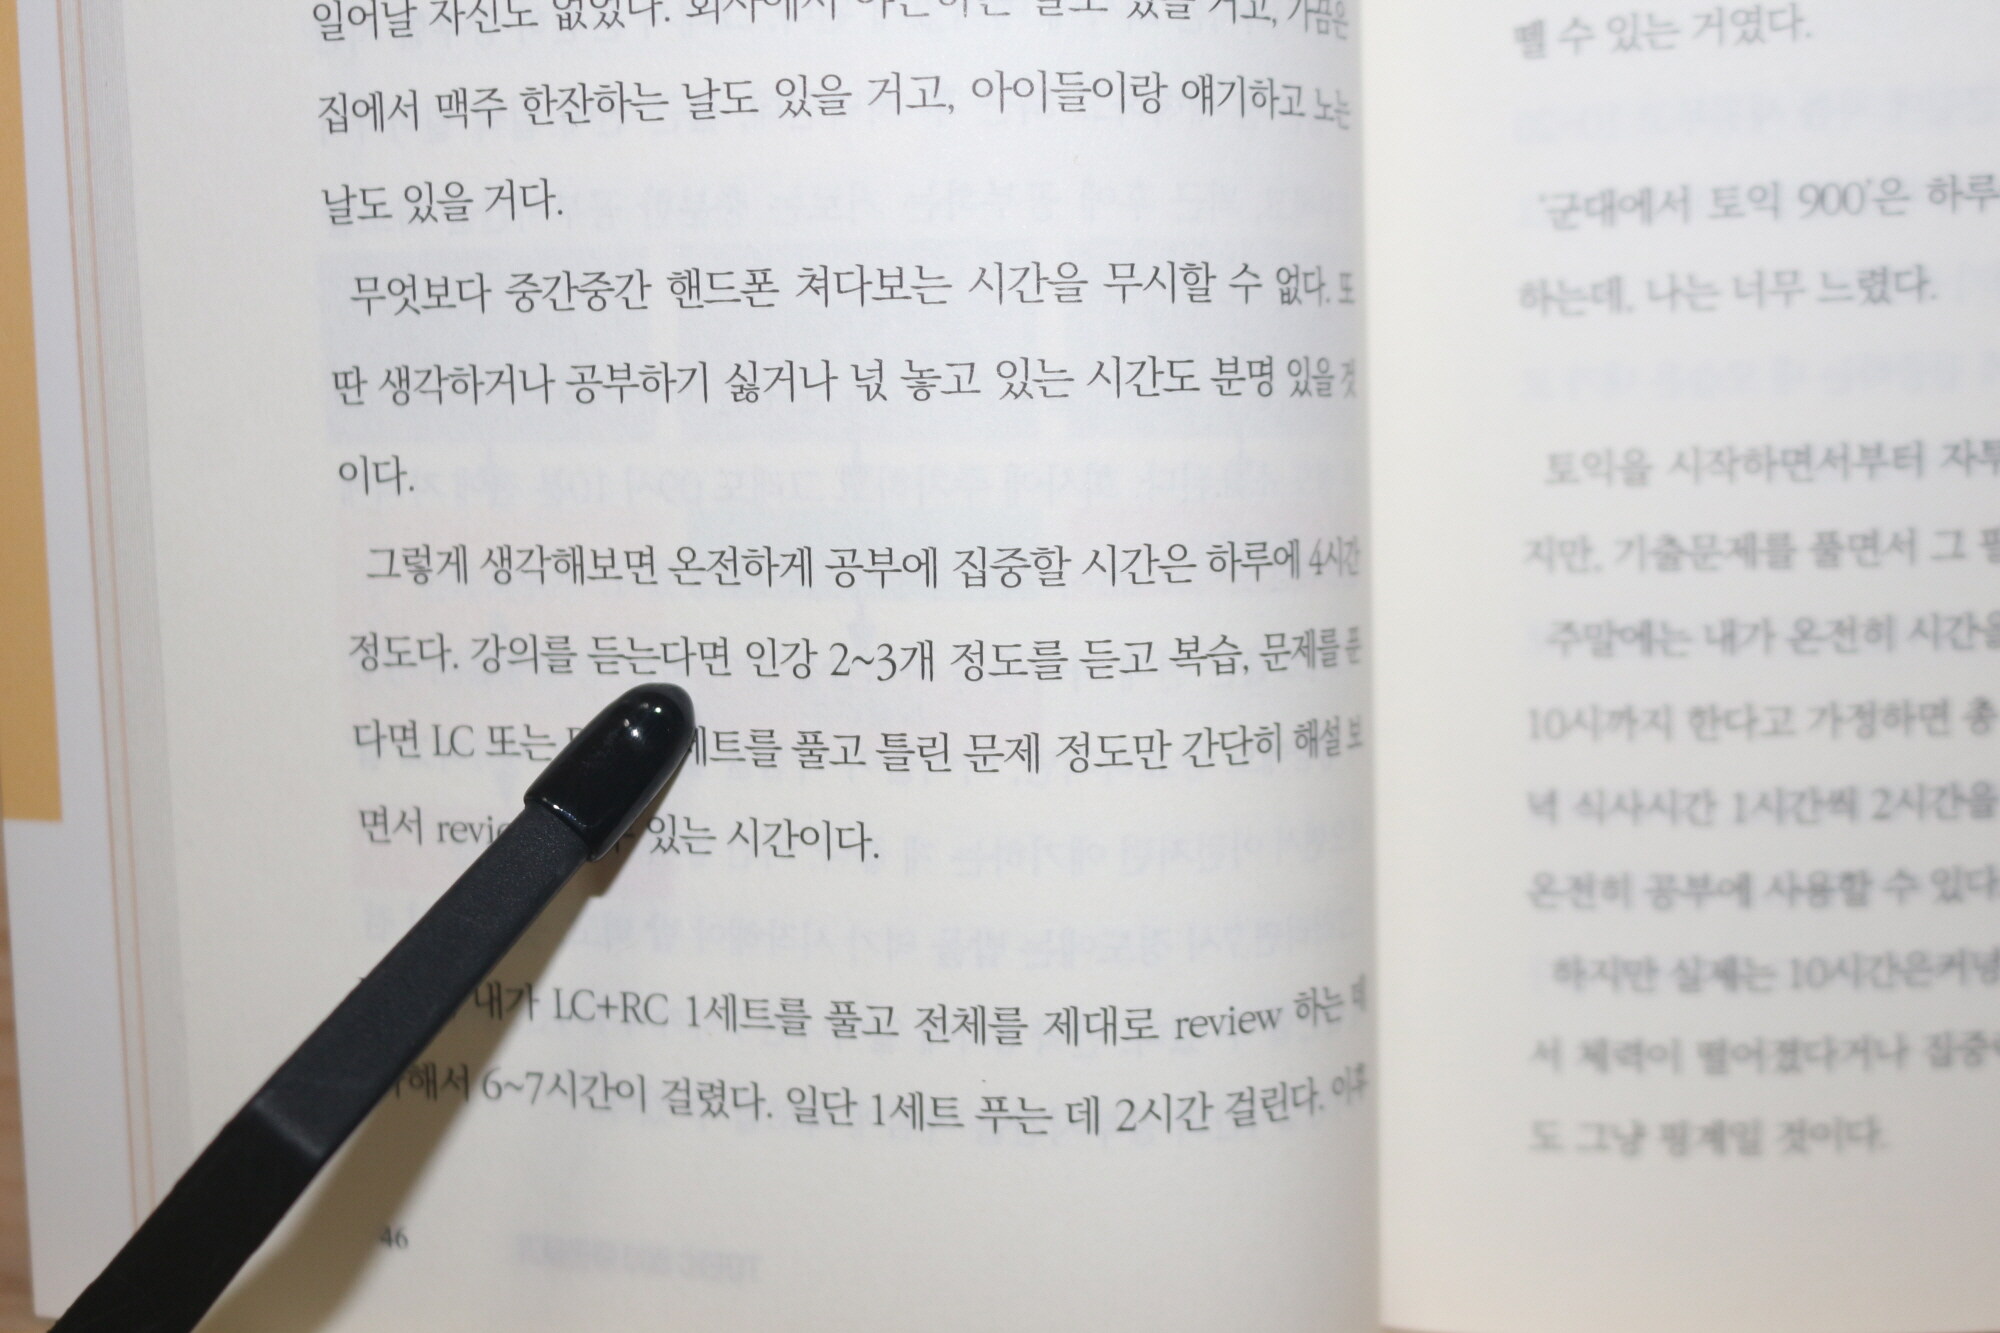 일어날 자신도 없었다. 회사에서 야근하는 날도 있을 거고, 가끔은
집에서 맥주 한잔하는 날도 있을 거고, 아이들이랑 얘기하고 노는
날도 있을 거다.
무엇보다 중간중간 핸드폰 쳐다보는 시간을 무시할 수 없다. 또
딴 생각하거나 공부하기 싫거나 넋 놓고 있는 시간도 분명 있을 것
이다.
그렇게 생각해보면 온전하게 공부에 집중할 시간은 하루에 4시간
정도다. 강의를 듣는다면 인강 2~3개 정도를 듣고 복습, 문제를 푼
다면 LC 또는 를 풀고 틀린 문제 정도만 간단히 해설 보
면서 있는 시간이다.
내가 LC+RC 1세트를 풀고 전체를 제대로 review 하는 데
6~7시간이 걸렸다. 일단 1세트 푸는 데 2시간 걸린다. 이후
46
뗄 수 있는 거였다.
'군대에서 토익 900'은 하루
하는데, 나는 너무 느렸다.
토익을 시작하면서부터 자투
지만, 기출문제를 풀면서 그
주말에는 내가 온전히 시간을
10시까지 한다고 가정하면 총
녁 식사시간 1시간씩 2시간을
온전히 공부에 사용할 수 있다
하지만 실제는 10시간은커녕
서 체력이 떨어졌다거나 집중
도 그냥 핑계일 것이다.